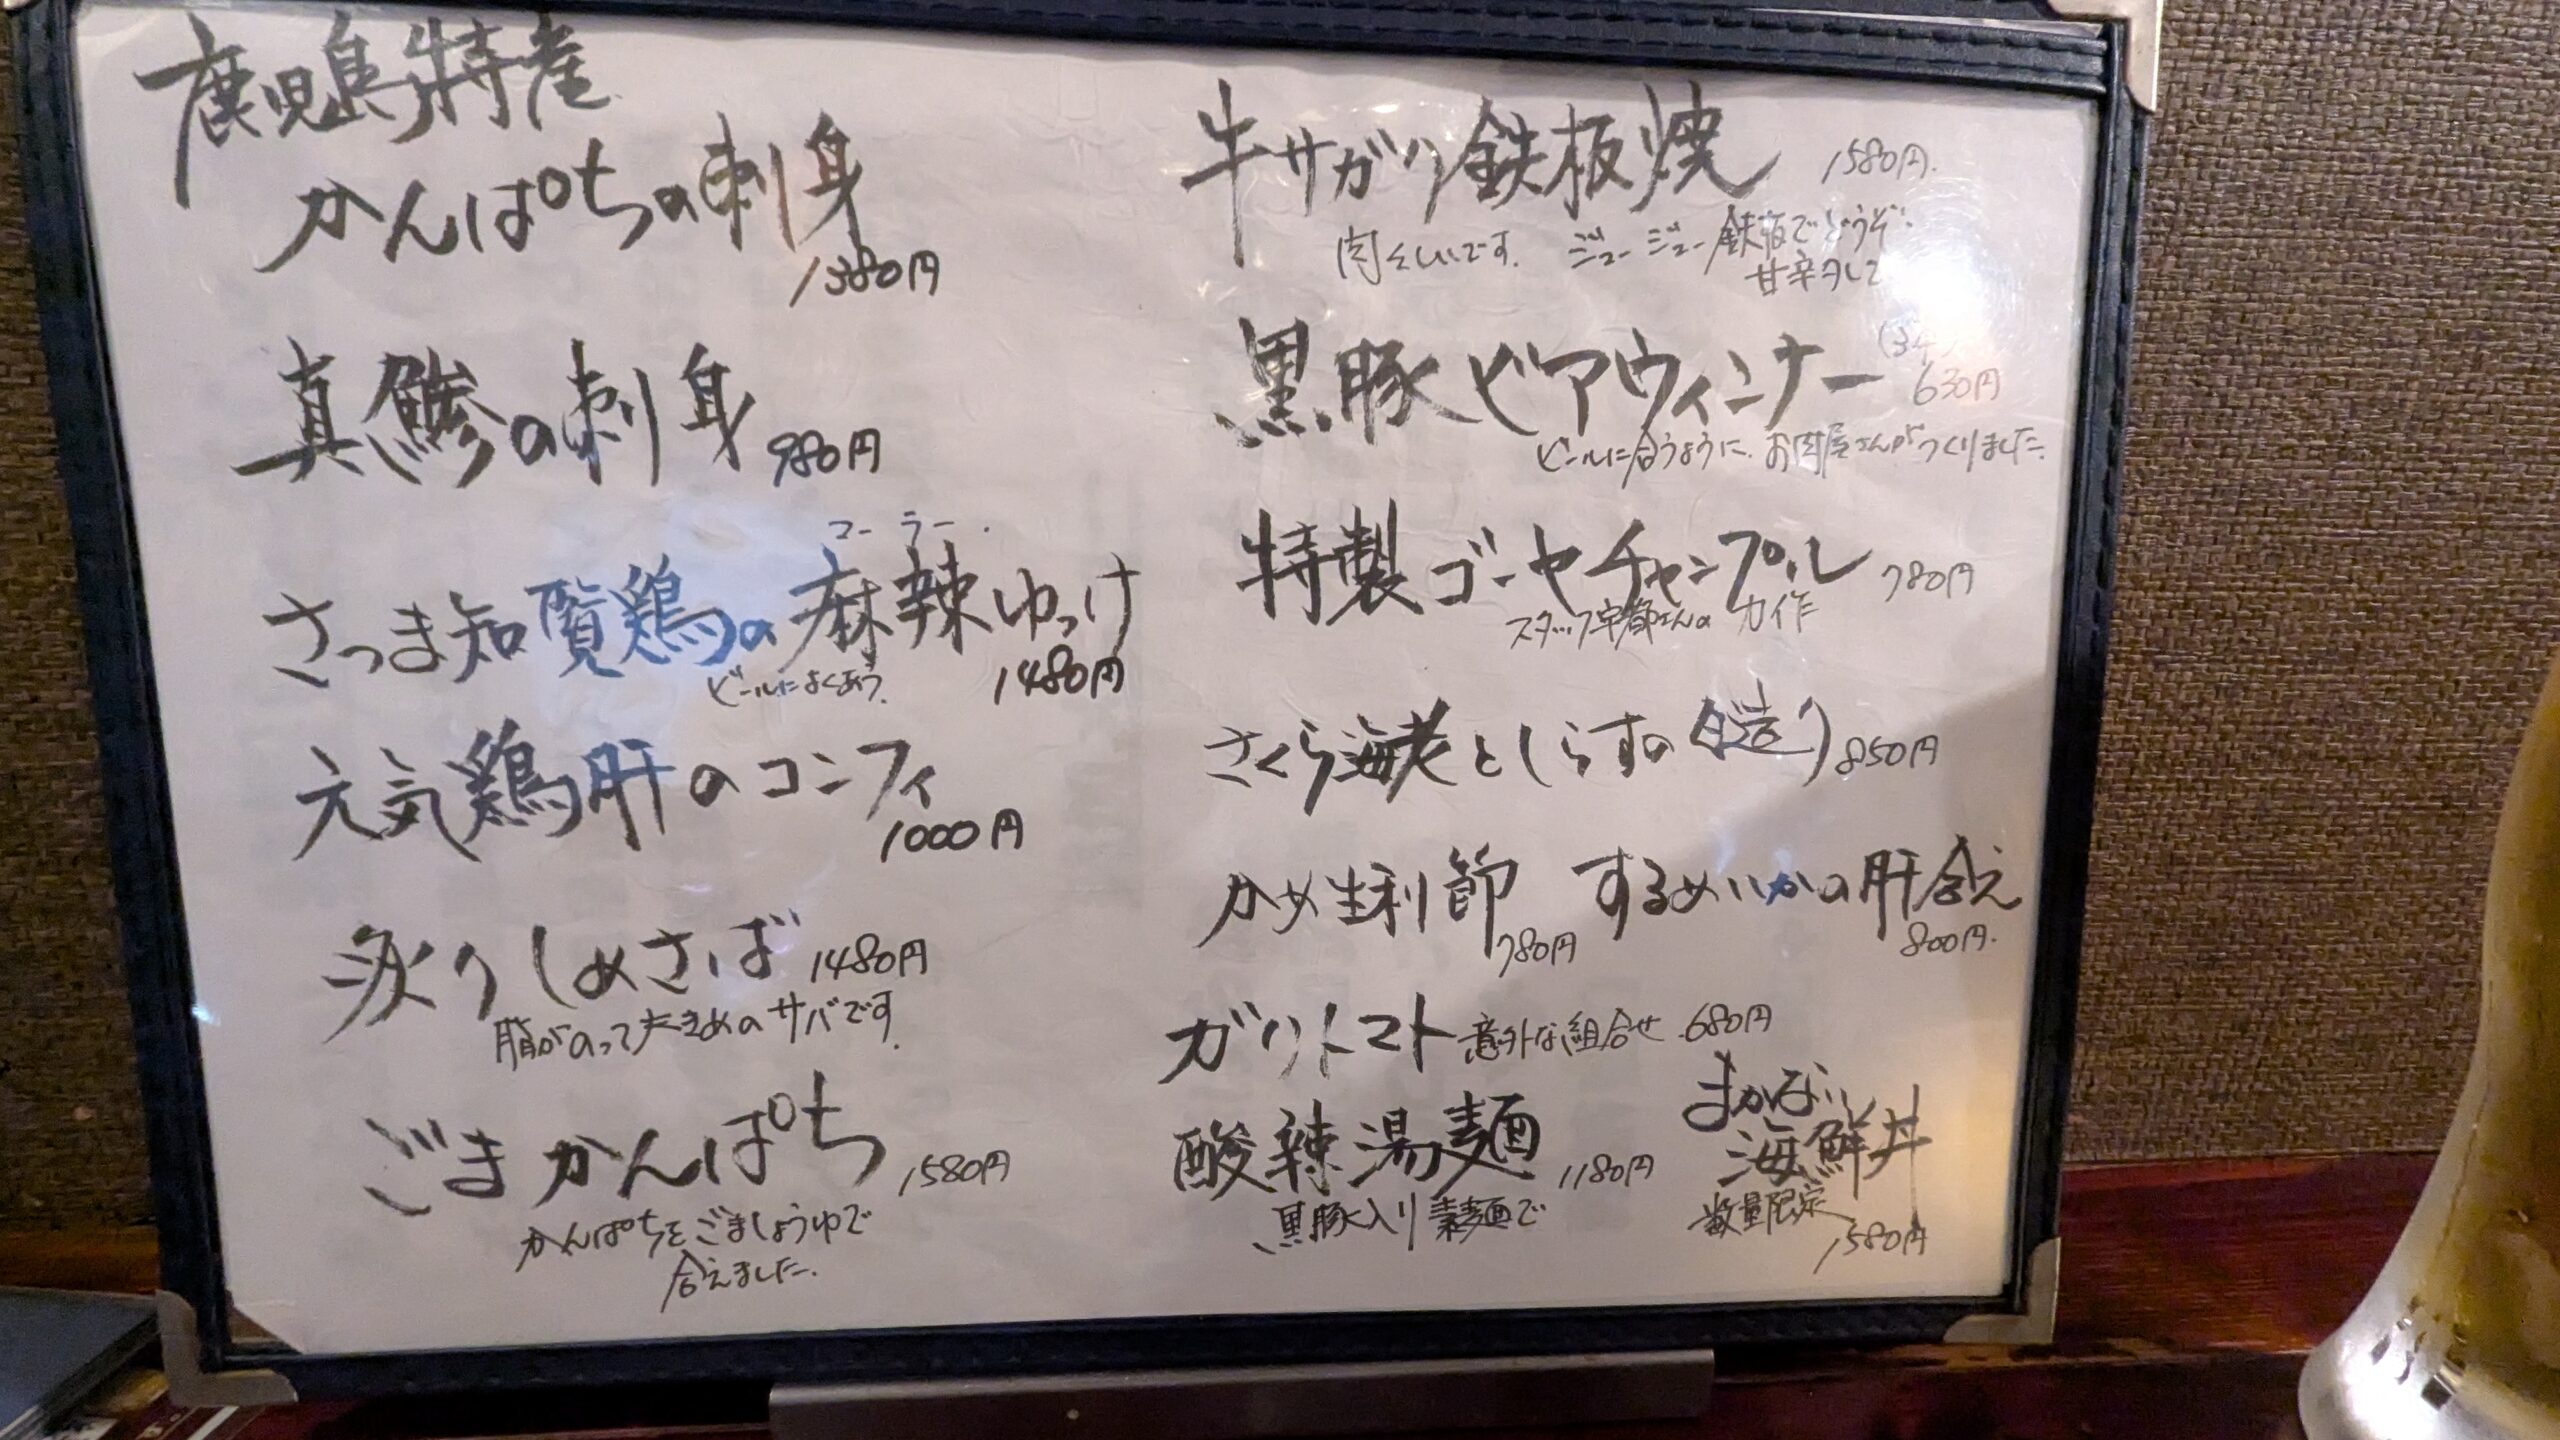 鹿児島特産
かんぱちの刺身
1380円
真鯵の刺身 980円
マーラー
さつま知覧鶏の麻辣ゆっけ
ビールによくあう 1480円
元気鶏肝のコンフィ
1000円
炙りしめさば 1480円
脂がのって大きめのサバです
ごまかんぱち 1580円
かんぱちをごましょうゆで
合えました
牛サガリ鉄板焼 1580円
肉々しいです ジュージュー鉄板でどうぞ
甘辛タレで
黒豚ビアウィンナー (3本) 630円
ビールに合うように お肉屋さんがつくりました
特製ゴーヤチャンプル 780円
スタッフ宇都さんの力作
さくら海老としらすの 850円
かめ生利節 するめいかの肝合え
780円 800円
ガリトマト 意外な組合せ 680円
酸辣湯麺 1180円
黒豚入り素麺で
まかない
海鮮丼
数量限定
1580円